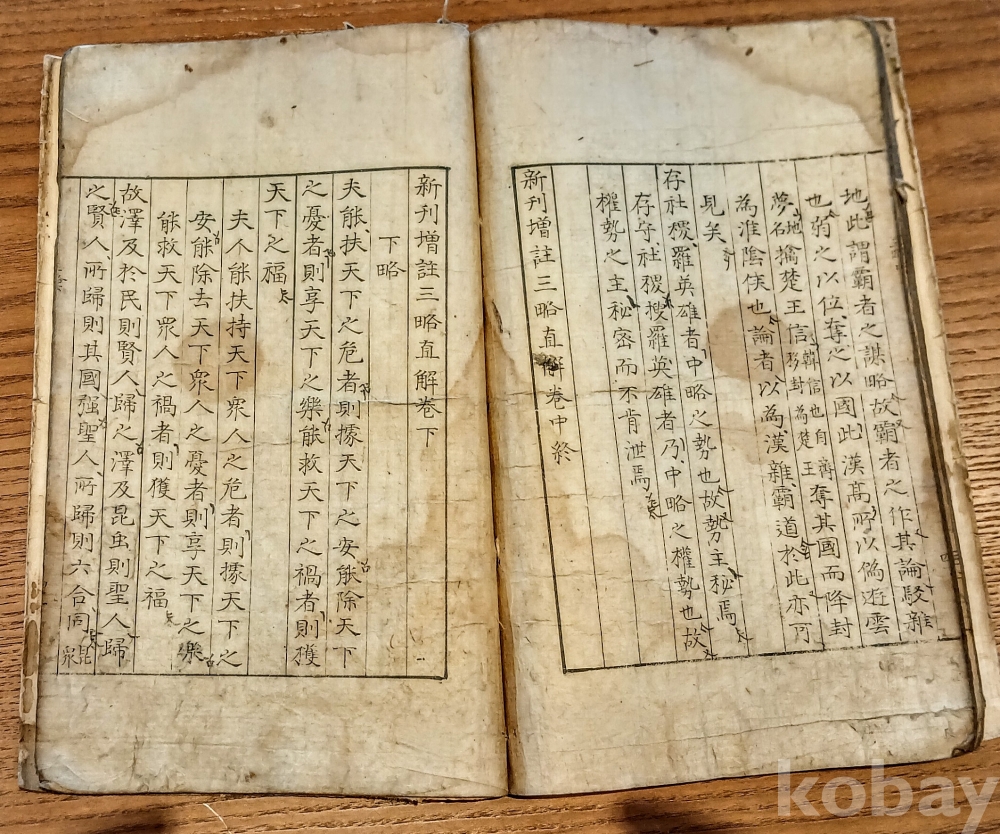 地此謂霸者之謀略故霸者之作其論駁雜
也弱之以位奪之以國此漢髙所以僞遊雲
夢地擒楚王信韓信也自齊移封為楚王奪其國而降封
為淮陰侯也論者以為漢雜霸道於此亦可
見矣
存社稷羅英雄者中略之㔟也故㔟主秘焉
存守社稷搜羅英雄者乃中略之權㔟也故
權㔟之主秘密而不肯泄焉
新刊增註三略直解卷中終
新刊增註三略直解卷下
下略
夫能扶天下之危者則據天下之安能除天下
之憂者則享天下之樂能救天下之禍者則獲
天下之福
夫人能扶持天下衆人之危者則據天下之
安能除去天下衆人之憂者則享天下之樂
能救天下衆人之禍者則獲天下之福
故澤及於民則賢人歸之澤及昆虫則聖人歸
之賢人所歸則其國强聖人所歸則六合同昆衆
kobay